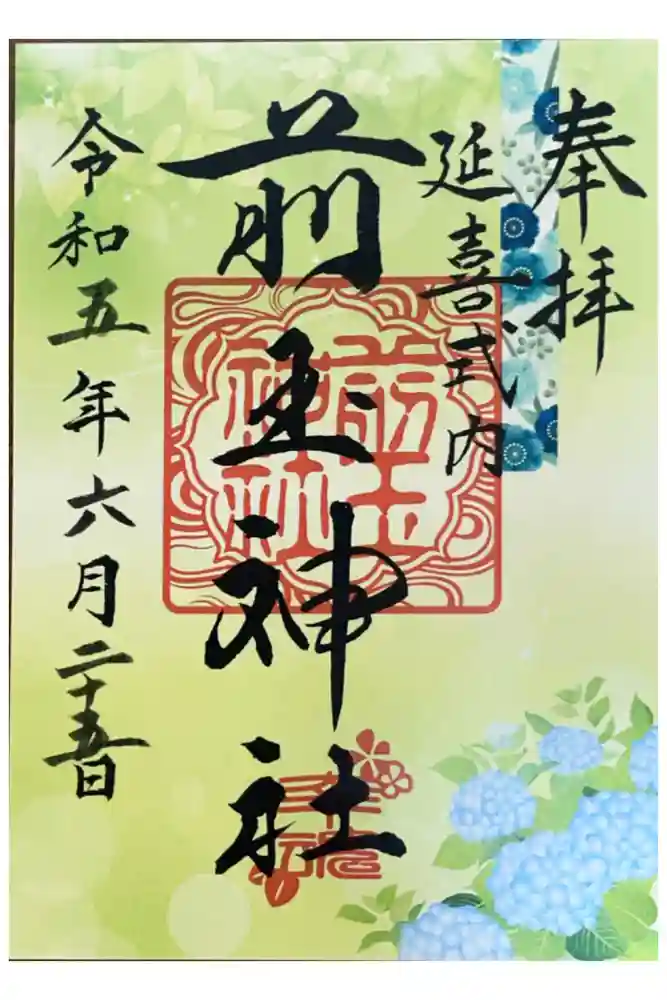 奉拝
延喜式内
前玉神社
前玉神社
令和五年六月二十五日